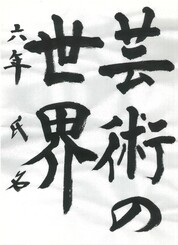 芸術の
世界
六年 氏名